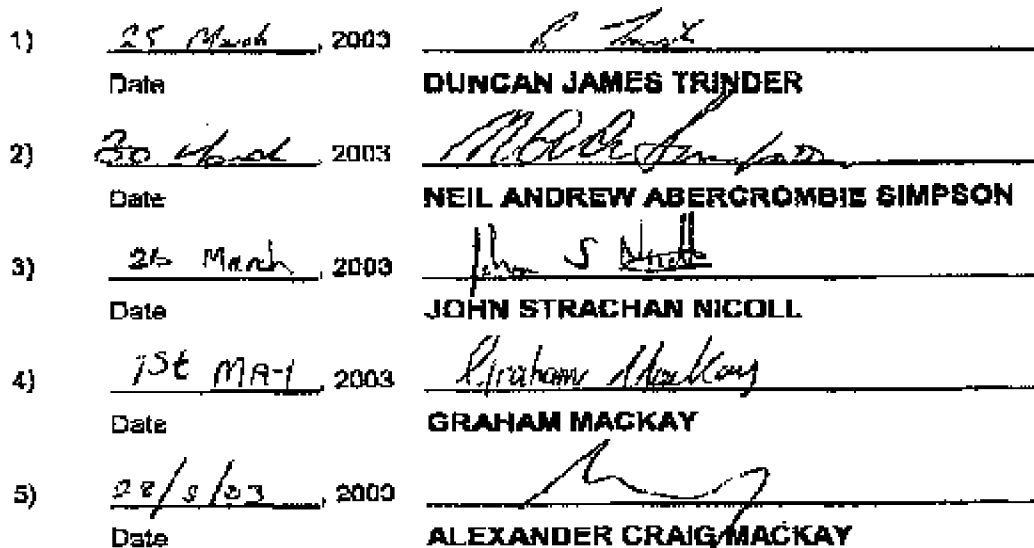 1) 25 March, 2003
Date DUNCAN JAMES TRINDER
2) 30 March 2003
Date NEIL ANDREW ABERCROMBIE SIMPSON
3) 26 March, 2003 John S Nicoll
Date JOHN STRACHAN NICOLL
4) 1st MAY, 2003 Graham MacKay
Date GRAHAM MACKAY
5) 28/ /03, 2003
Date ALEXANDER CRAIG MACKAY